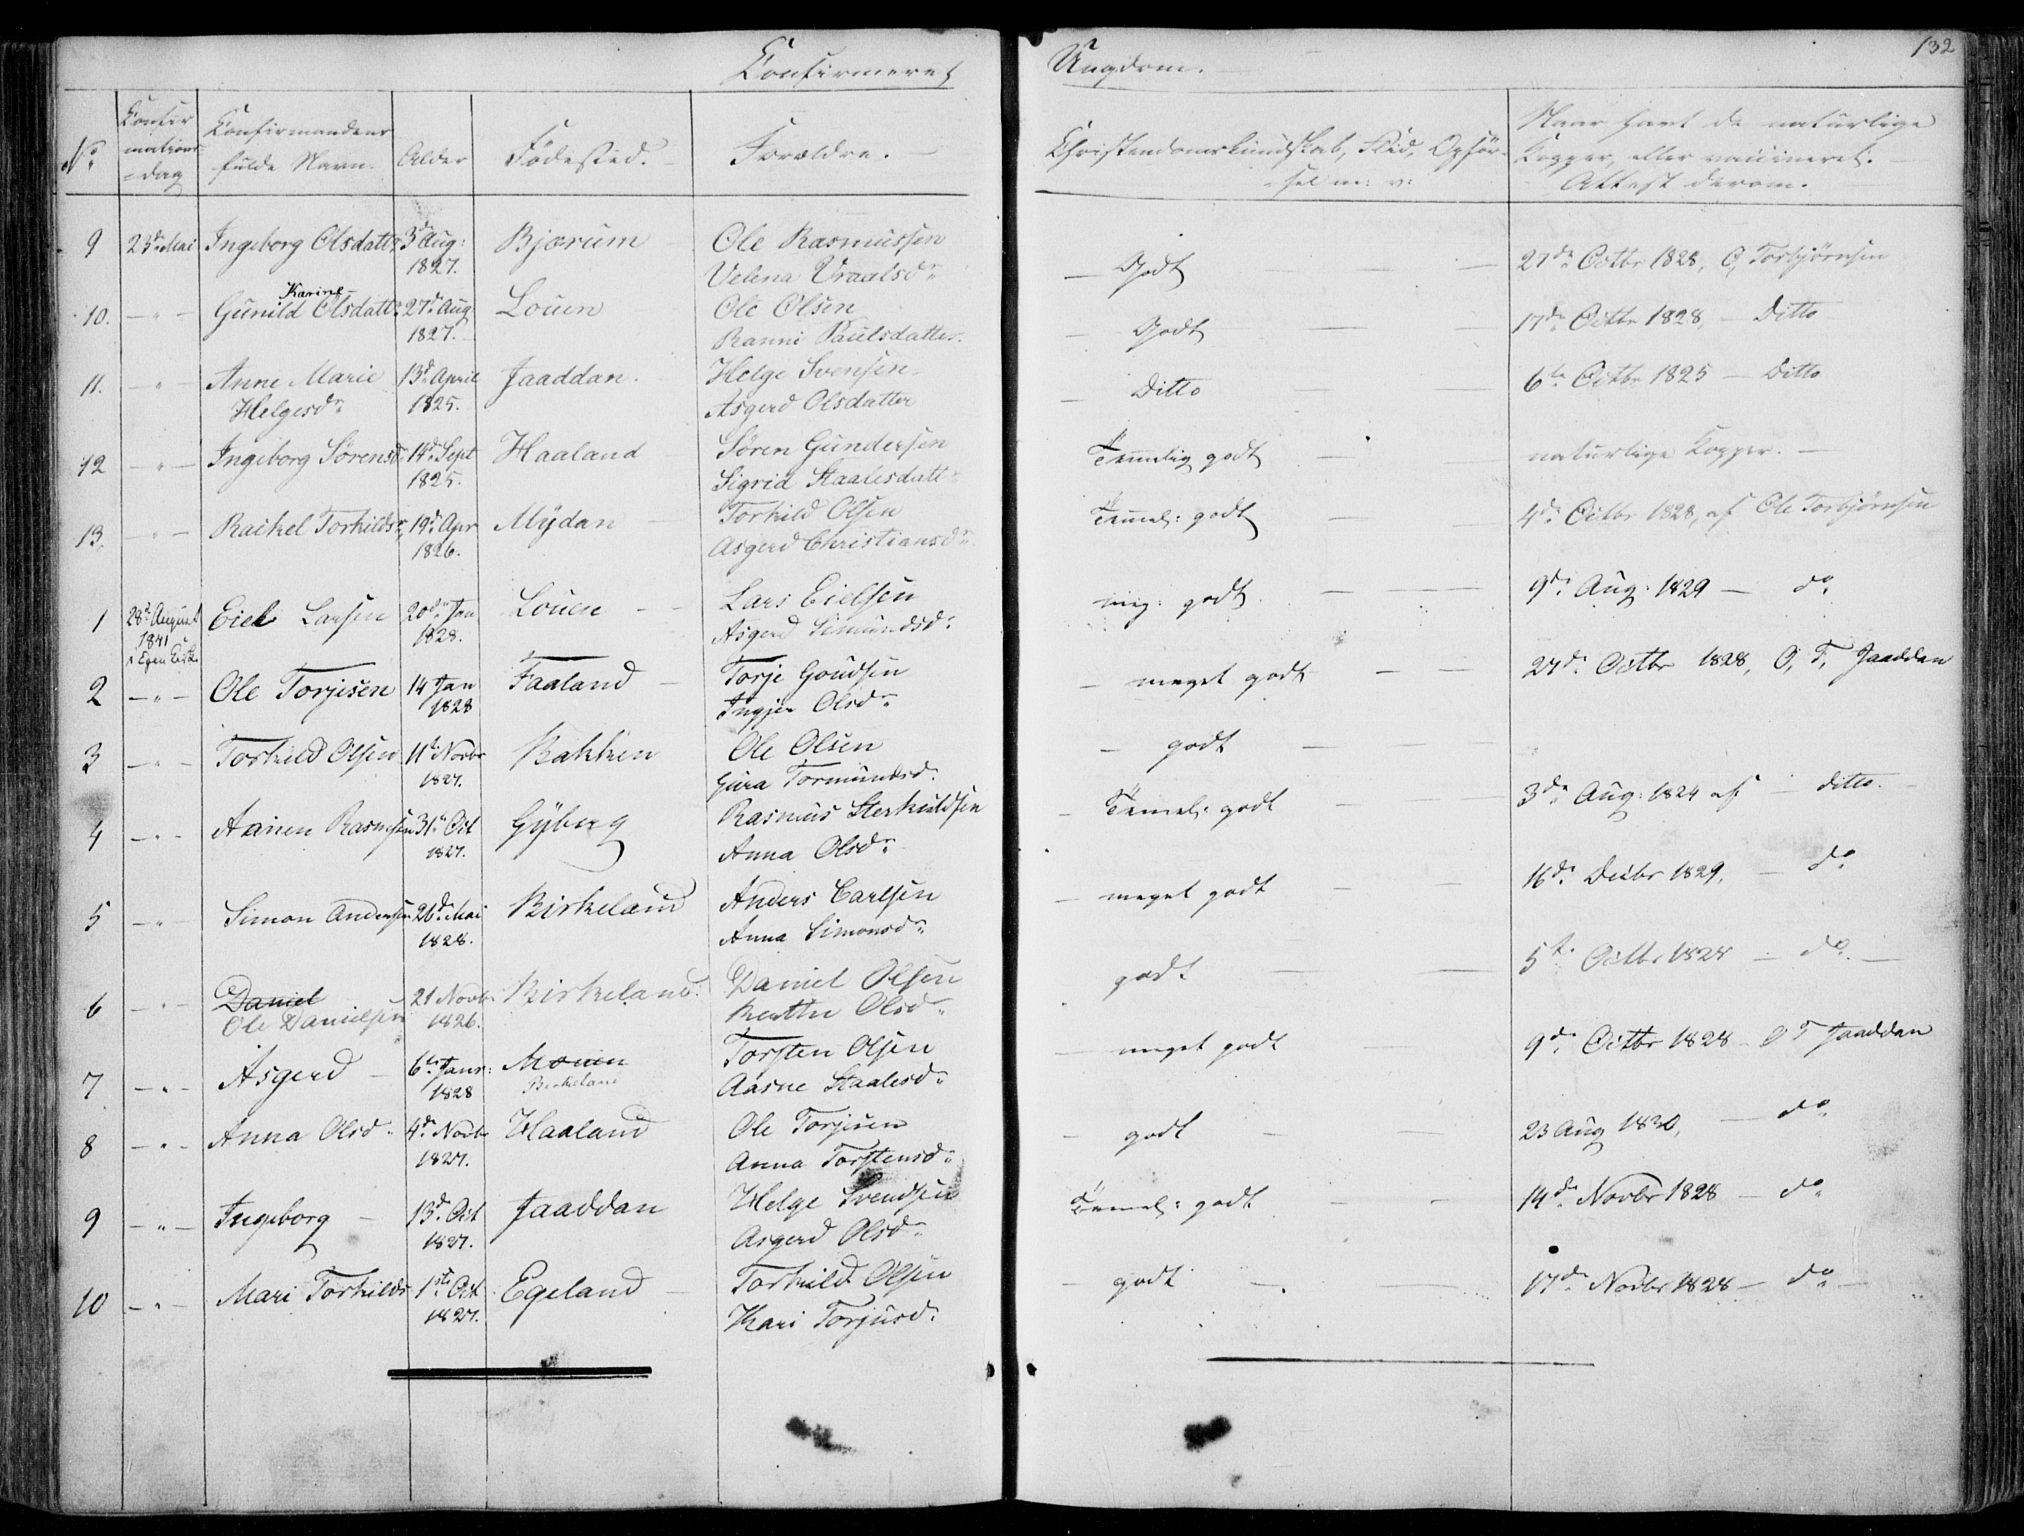 Confirmeret Ungdom. 132
No. Confirmationsdag Confirmandens fulde Navn. Alder Fødested. Forældre. Christendomskundskab, Flid, Opførsel m: v: Naar havt de naturlige Kopper, eller vaccineret. Attest derom.
9 23d. Mai Ingeborg Olsdatter 3d Aug: Bjørum Ole Rasmussen
1827. Velena Vraalsdr. Godt 27de Octbr 1828, O, Torbjørnsen
Karine
10. - " - Gunild Olsdattr 27d. Aug Louen Ole Olsen
1827. Ranni Paulsdatter. Godt 17de Octbr 1828, - Ditto
11. - " - Anne Marie 13d. April Jaaddan. Helge Svensen
Helgesdr. 1825. Asgerd Olsdatter Ditto 6te Octbr 1825 - Ditto
12 - " - Ingeborg Sørensd 14d. Sept Haaland Søren Gundersen
1825. Sigrid Staalesdatt Temmelig godt naturlige Kopper. -
13. - " - Rachel Torkildsr. 19d. Apr Mÿdan Torkild Olsen
1826. Asgerd Christiansdr. Temmel: godt 4de Octbr 1828, af Ole Torbjørnsen
1 28d. August Eiel Larsen 20de Jan Louen Lars Eielsen
1841 1828. Asgerd Simundsd. meg: godt 9de Aug: 1829 - do
i Egen Kirke
2 - " - Ole Torjesen 14 Jan Faaland Torje Goudsen
1828 Ingjer Olsdr. meget godt 27de Octbr 1828, O, T, Jaaddan
3 - " - Torkild Olsen 11te Novbr Bakken Ole Olsen
1827. Gura Tormundsd. godt
4 - " - Aanen Rasmusen 31te Oct Gÿberg Rasmus Sterkuldsen
1827. Anna Olsdr. Temmel: godt 3de Aug: 1824 af - ditto.
5 - " - Simon Andersen 26d. Mai Birkeland Anders Carlsen
1828. Anna Simonsdr. meget godt 16de Decbr 1829, - do
6 - " - Daniel 21 Novbr Birkeland. Daniel Olsen
Ole Danielsen 1826. Berthe Olsdr. godt 5te Octbr 1828 - do. -
7 - " - Asgerd - 6te Janr: Mouen Torsten Olsen
1828 Birkeland Aasne Staalesdr. meget godt 9de Octbr 1828 - O T Jaaddan
8 - " - Anna Olsdr. 4d. Novbr Haaland Ole Torjesen
1827. Anna Torstensdr. godt 23 Aug 1830, - do
9 - " - Ingeborg - 13d. Oct Jaaddan Helge Svendsen
1827. Asgerd Olsdr. Temmel: godt 14de Novbr 1828 - do
10 - " - Mari Torkilds 1ste Oct Egeland Torkild Olsen
1827. Kari Torjusd. godt 17de Novbr 1828 - do -